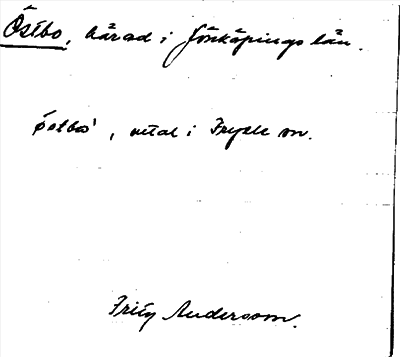 Östbo, härad i Jönköpings län.
östbo', uttal i Fryele sn.
Fritz Andersson.